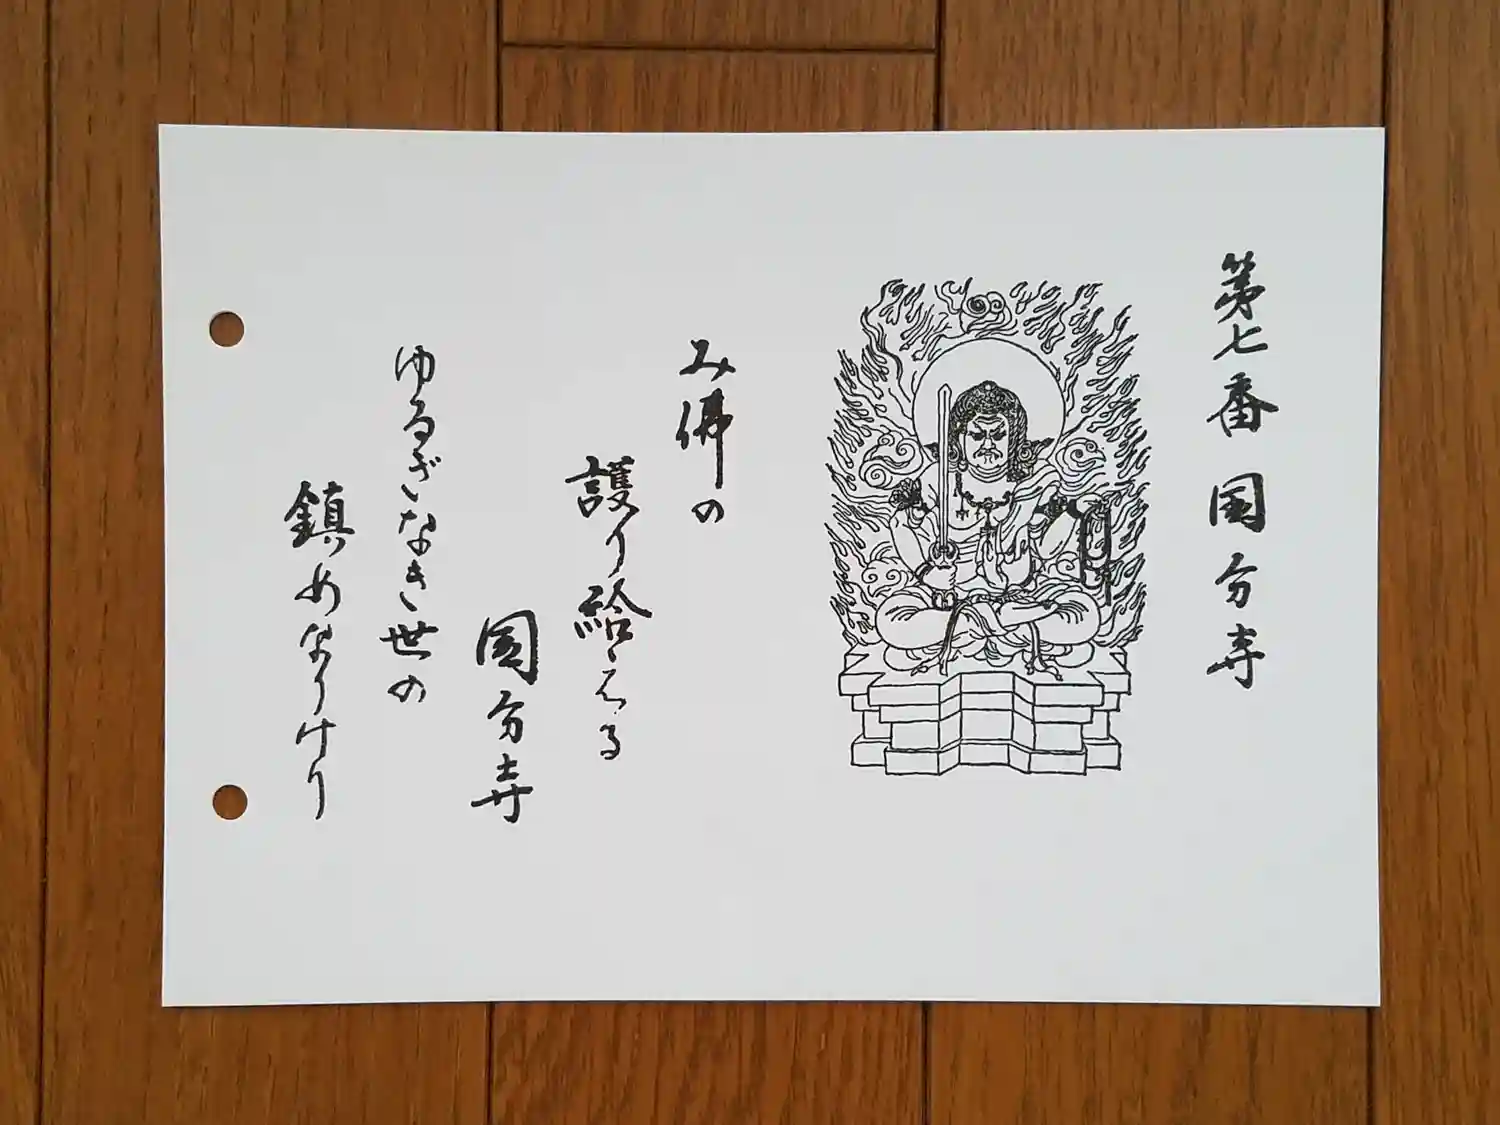 第七番 国分寺
み佛の
護り給える
国分寺
ゆるぎなき世の
鎮めなりけり